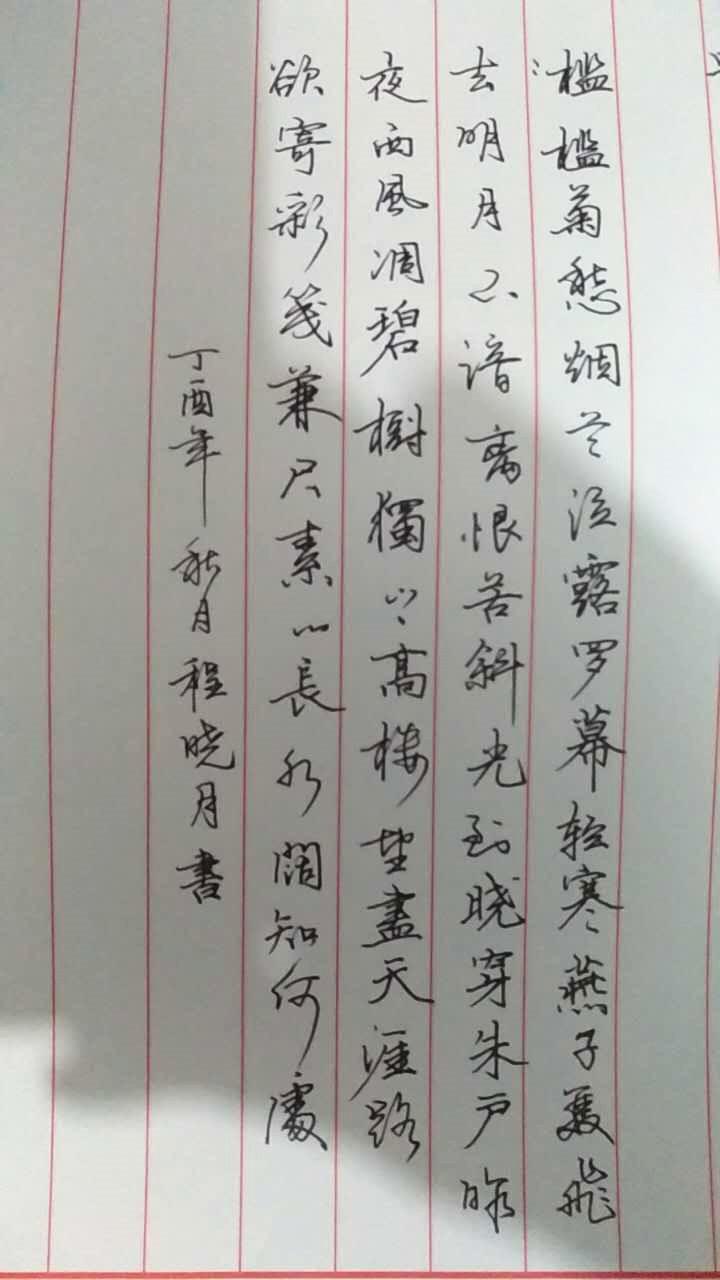 槛槛菊愁烟兰泣露罗幕轻寒燕子雙飛
去明月不谙离恨苦斜光到晓穿朱户昨
夜西風凋碧樹獨上高楼望盡天涯路
欲寄彩笺兼尺素山長水闊知何處
丁酉年秋月程晓月書